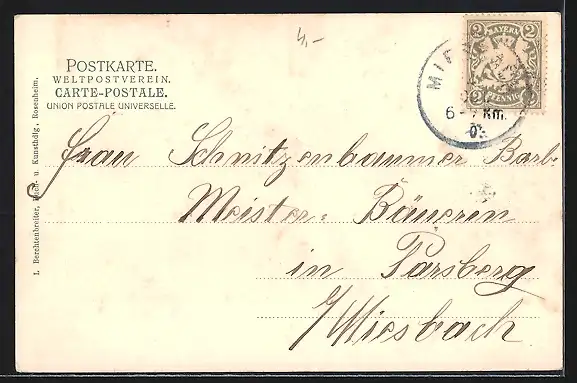 4,-
POSTKARTE.
WELTPOSTVEREIN.
CARTE-POSTALE.
UNION POSTALE UNIVERSELLE.
BAYERN
2 2
2 2
PFENNIG
MIE
6-7 Nm.
L. Berchtenbreiter, Buch- u. Kunsthdlg., Rosenheim.
Frau Schnitzenbaumer Barb.
Meister- Bäuerin
in Parsberg
b/Miesbach